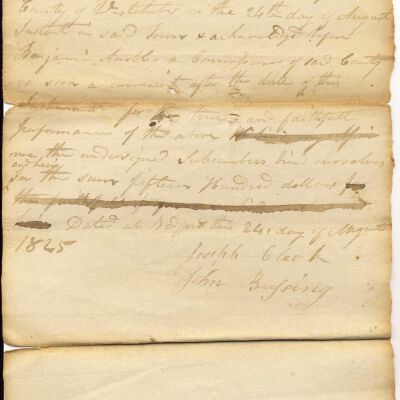 County of Westchester on the 24th day of August
Instant in said Town & acknowledged before
Benjamin a Commissioner of said County
as soon a convenient after the date of this
Instrument for the true and faithfull
performance of the above
we, the undersigned Subscribers bind ourselves
in the sum fifteen Hundred dollars
Dated at Bedford this 24th day of August
1825
Joseph Clark
John Bussing